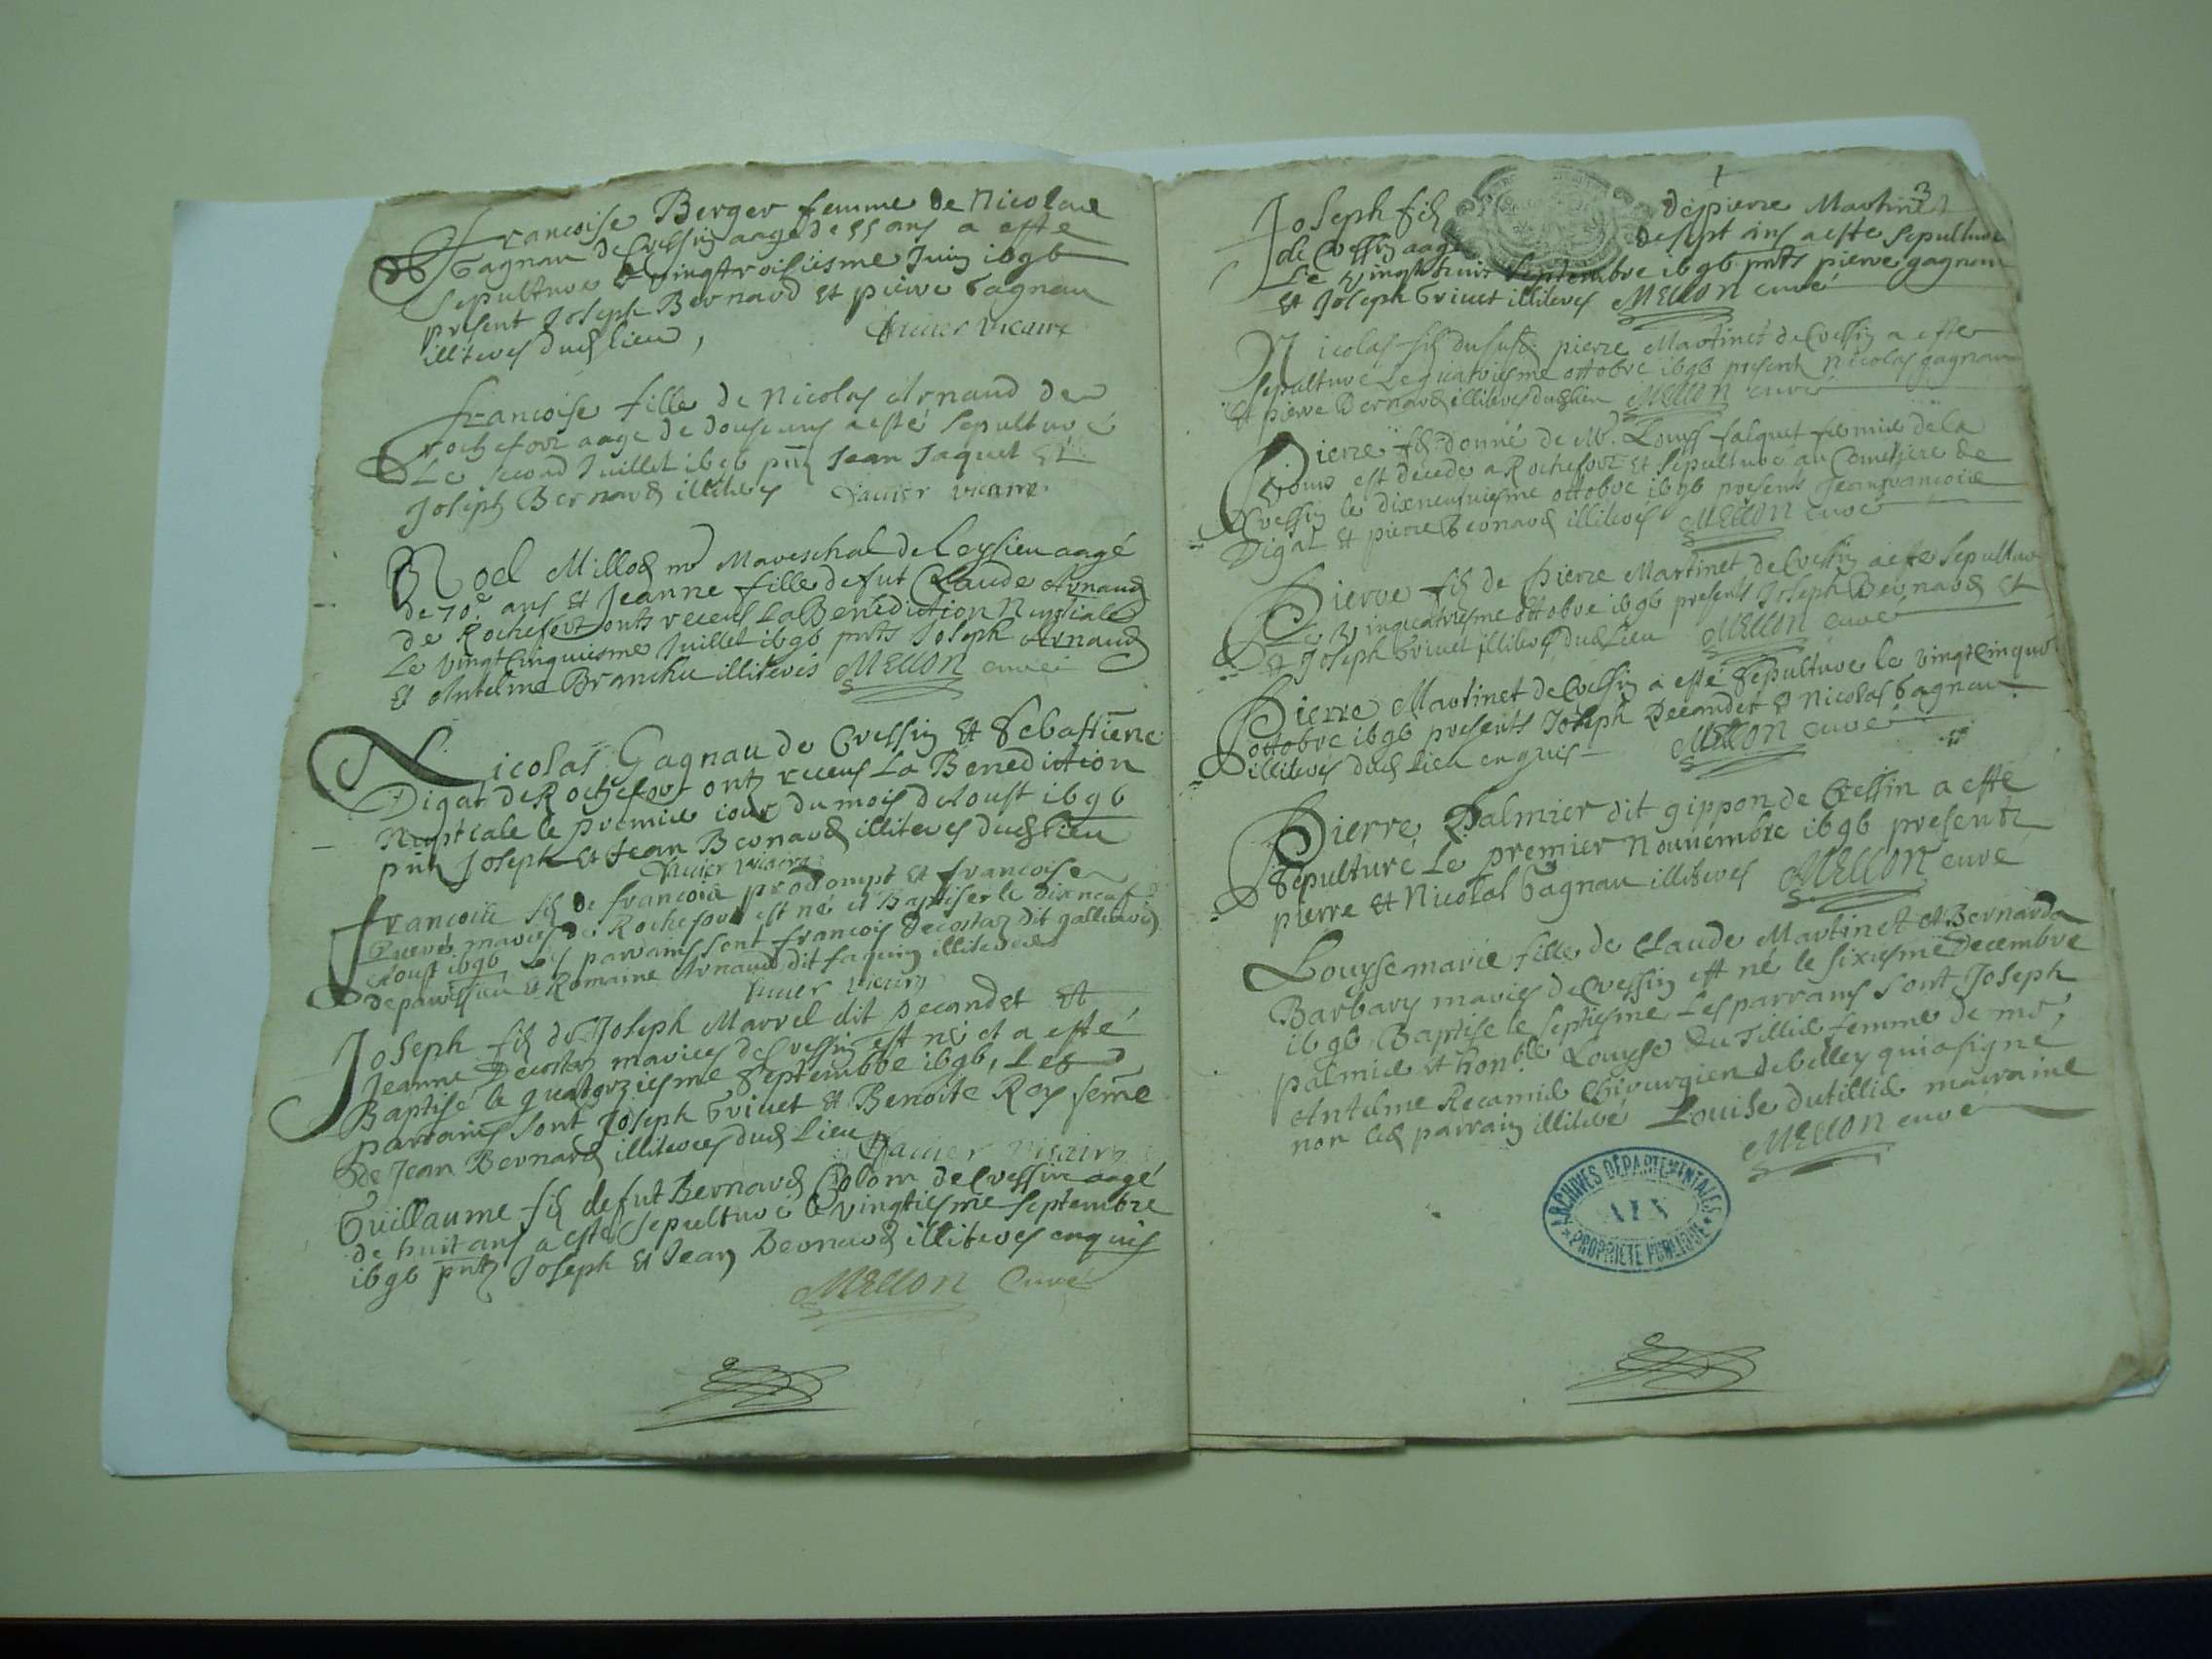 Francoise Berger femme de Nicolas
Gagnau de Cressin aagé de 55 ans a esté
sepulturé le vingtroisiesme Juin 1696
présent Joseph Bernard et pierre Gagnau
illiteres dud lieu, vicaire
francoise fille de Nicolas Arnaud de
rochefort aagé de douse ans a esté sepulturé
Le second Juillet 1696 pnts Jean Jaquet et
Joseph Bernard illiteres vicaire
Noel Milliod mre Mareschal de Leysieu aagé
de 70 ans et Jeanne fille de fut Claude Arnaud
de Rochefort ont receus La Benediction Nuptiale
Le vingt cinquiesme Juillet 1696 pnts Joseph Arnaud
Et Antelme Branche illiteres MELLON curé
Nicolas Gagnau de Cressin et Sebastiene
Digat de Rochefort ont receus La Benediction
Nuptiale le premier iour du mois d'Aoust 1696
pnts Joseph et Jean Bernard illiteres dud lieu
vicaire
francois fils de francois prodompt et francoise
mariés de Rochefort est né et Baptiser le dixneuf
Aoust 1696 Les parrains sont francois Decostaz dit
de et Romaine Arnaud dit illiteres
vicaire
Joseph fils de Joseph Marrel dit Decandet et
Jeanne Decostaz mariees de Cressin est né et a esté
Baptisé le quatorziesme Septembre 1696, Les
parrains sont Joseph Grivet et Benoite Rey feme
de Jean Bernard illiteres dud Lieu
vicaire
Guillaume fils de fut Bernard Colom de Cressin aagé
de huit ans a esté sepulturé le vingtiesme Septembre
1696 pnts Joseph et Jean Bernard illiteres enquis
MELLON Curé
3
Joseph fils de pierre Martinet
de Cressin aagé de sept ans a esté sepulturé
Le vingt huit Septembre 1696 pnts pierre gagnau
Et Joseph Grivet illiteres MELLON curé
Nicolas fils dususd pierre Martinet de Cressin a esté
sepulturé Le quatriesme ottobre 1696 present Nicolas gagnau
et pierre Bernard illiteres dud lieu MELLON curé
Pierre fils donné de Mr. Louys falquet fermier de la
est decede a Rochefort et sepulturé au Cemetiere de
Cressin le dixneufviesme ottobre 1696 presents Jeanfrancois
Digat et pierre Bernard illiteres MELLON curé
Pierre fils de Pierre Martinet de Cressin a esté sepulturé
Le vinquatriesme ottobre 1696 presents Joseph Bernard et
et Joseph Grivet illiteres dud Lieu MELLON curé
Pierre Martinet de Cressin a esté Sepulturé le vingtcinque
ottobre 1696 presents Joseph Decandet et Nicolas Gagnau
illiteres dud Lieu enquis MELLON curé
Pierre Palmier dit gippon de Cressin a esté
Sepulturé Le premier Nouvembre 1696 presents
pierre et Nicolas Gagnau illiteres MELLON curé
Louyse marie fille de Claude Martinet et Bernarda
Barbary mariés de Cressin est né le sixiesme Decembre
1696 Baptisé le septiesme Les parrains sont Joseph
palmier et honble Louyse Du Tillie femme de mr,
Antelme Recamié Chirurgien de belley qui a signé
non led parrain illiteré Louise dutillié marraine
MELLON curé
ARCHIVES DÉPARTEMENTALES
AIN
PROPRIÉTÉ PUBLIQUE